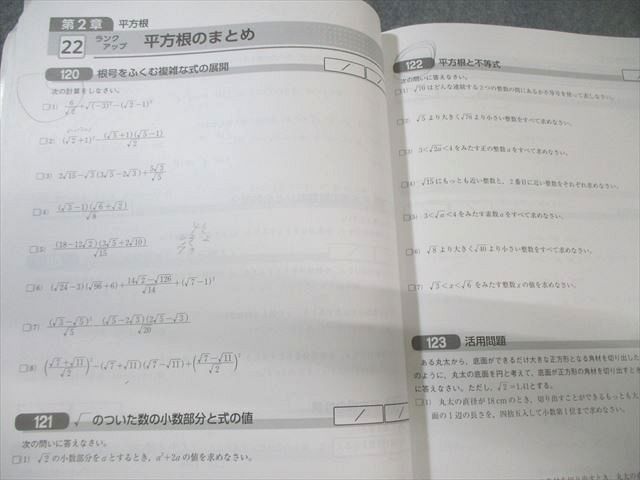 第2章 平方根
22 ランクアップ 平方根のまとめ
120 根号をふくむ複雑な式の展開
次の計算をしなさい。
□(1) 6/√2+√(-3)²-(√2-1)²
□(2) (√2+1)²-(√5+1)(√5-1)/√2
□(3) 2√15-√3(3√5-2√3)+5√3/√5
□(4) (√3-1)(√6+√2)/√8
□(5) (18-12√2)(3√5+2√10)/√15
□(6) (√24-3)(√96+6)+14√2-√126/√14+(√7-1)²
□(7) (√3-√5)²/√5-(√5-2√3)(2√5-√3)/√20
□(8) (√7+√11/√2)²-(√7+√11)(√7-√11)+(√7-√11/√2)²
121 √ のついた数の小数部分と式の値
次の問いに答えなさい。
□(1) √2の小数部分をaとするとき，a²+2aの値を求めなさい。
122 平方根と不等式
次の問いに答えなさい。
□(1) √70はどんな連続する2つの整数の間にあるか不等号を使って表しなさい。
□(2) √5より大きく√70より小さい整数をすべて求めなさい。
□(3) 3<√2a<4をみたす正の整数aをすべて求めなさい。
□(4) √15にもっとも近い整数と，2番目に近い整数をそれぞれ求めなさい。
□(5) 3<√a<4をみたす素数aをすべて求めなさい。
□(6) √8より大きく√40より小さい整数をすべて求めなさい。
□(7) √3<x<√6をみたす整数xの値を求めなさい。
123 活用問題
ある丸太から，底面ができるだけ大きな正方形となる角材を切り出した
のように，丸太の底面を円と考えて，底面が正方形の角材を切り出すとき
に答えなさい。ただし，√2=1.41とする。
□(1) 丸太の直径が18cmのとき，切り出すことができるもっとも大
面の1辺の長さを，四捨五入して小数第1位まで求めなさい。